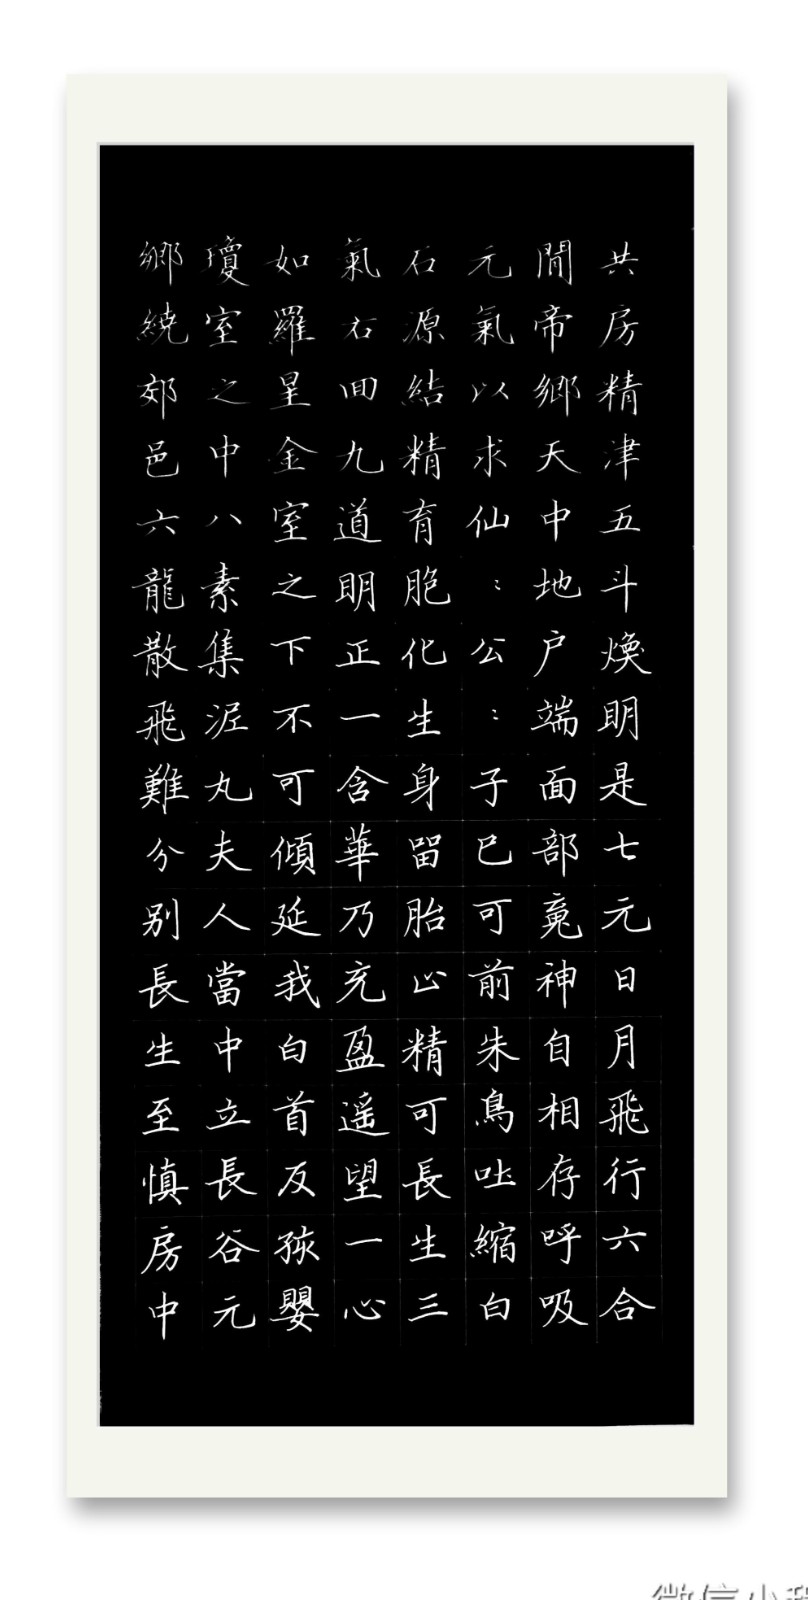 共房精津五斗煥明是七元日月飛行六合
間帝鄉天中地户端面部䰟神自相存呼吸
元氣以求仙〻公〻子已可前朱鳥吐縮白
石源結精育胞化生身留胎止精可長生三
氣右回九道明正一含華乃充盈遥望一心
如羅星金室之下不可傾延我白首反孩嬰
瓊室之中八素集泥丸夫人當中立長谷元
鄉繞郊邑六龍散飛難分别長生至慎房中
微信小程